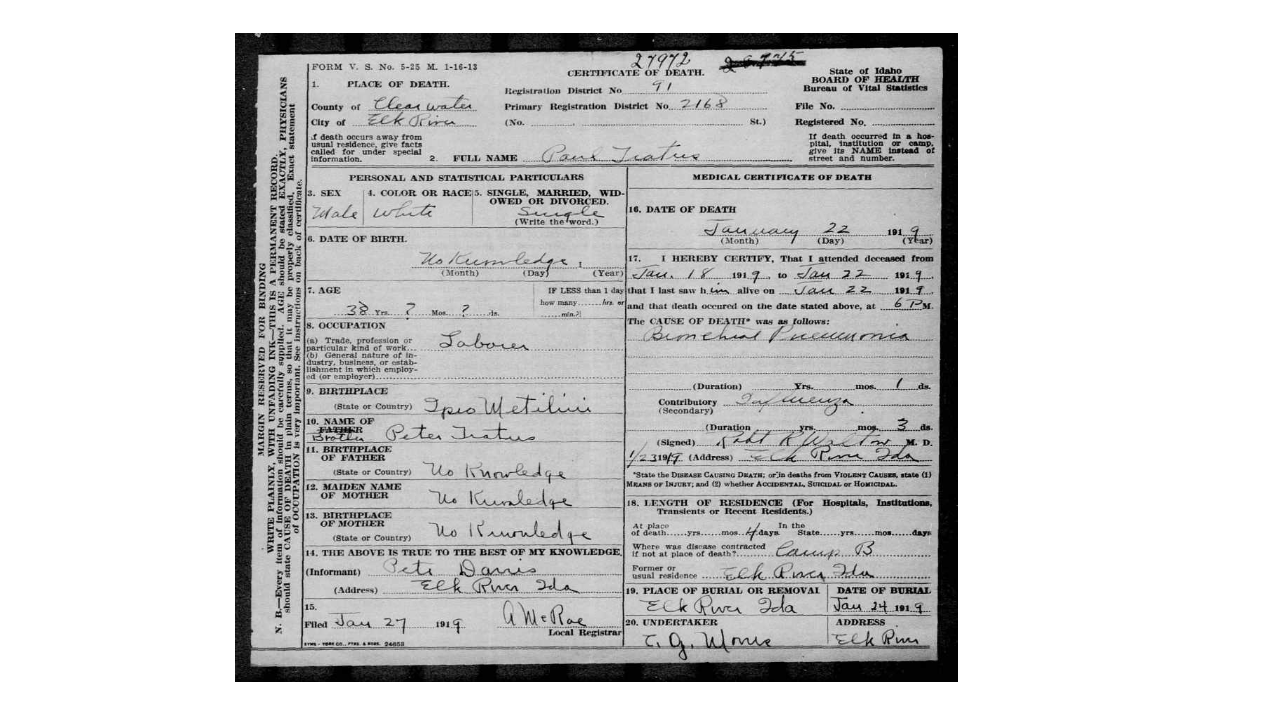 27972
FORM V. S. No. 5-25 M. 1-16-13
CERTIFICATE OF DEATH.
State of Idaho
BOARD OF HEALTH
Bureau of Vital Statistics
1. PLACE OF DEATH.
Registration District No 91
County of Clearwater
Primary Registration District No 2168
File No.
City of Elk River
(No. St.)
Registered No.
If death occurs away from
usual residence, give facts
called for under special
information.
If death occurred in a hos-
pital, institution or camp,
give its NAME instead of
street and number.
2. FULL NAME Paul Tratus
PERSONAL AND STATISTICAL PARTICULARS
3. SEX
Male
4. COLOR OR RACE
White
5. SINGLE, MARRIED, WID-
OWED OR DIVORCED.
Single
(Write the word.)
6. DATE OF BIRTH.
No Knowledge,
(Month) (Day) (Year)
7. AGE
38 Yrs. ? Mos. ? ds.
IF LESS than 1 day
how many hrs. or
min.?
8. OCCUPATION
(a) Trade, profession or
particular kind of work... Laborer
(b) General nature of in-
dustry, business, or estab-
lishment in which employ-
ed (or employer)
9. BIRTHPLACE
(State or Country) Metilini
10. NAME OF
FATHER
Brother Peter Tratus
11. BIRTHPLACE
OF FATHER
(State or Country) No Knowledge
12. MAIDEN NAME
OF MOTHER No Knowledge
13. BIRTHPLACE
OF MOTHER
(State or Country) No Knowledge
14. THE ABOVE IS TRUE TO THE BEST OF MY KNOWLEDGE,
(Informant) Pete Darris
(Address) Elk River Ida
15.
Filed Jan 27 1919 A McRae
Local Registrar
MEDICAL CERTIFICATE OF DEATH
16. DATE OF DEATH
January 22 1919
(Month) (Day) (Year)
17. I HEREBY CERTIFY, That I attended deceased from
Jan. 18 1919, to Jan 22 1919,
that I last saw him alive on Jan 22 1919
and that death occured on the date stated above, at 6 P M.
The CAUSE OF DEATH* was as follows:
Bronchial Pneumonia
(Duration) Yrs. mos. 1 ds.
Contributory Influenza
(Secondary)
(Duration yrs. mos. 3 ds.
(Signed) Robt R Walton M. D.
1/23 1919 (Address) Elk River Ida
*State the DISEASE CAUSING DEATH; or in deaths from VIOLENT CAUSES, state (1)
MEANS OF INJURY; and (2) whether ACCIDENTAL, SUICIDAL or HOMICIDAL.
18. LENGTH OF RESIDENCE (For Hospitals, Institutions,
Transients or Recent Residents.)
At place In the
of death yrs. mos. 4 days State yrs. mos. days
Where was disease contracted
if not at place of death? Camp B
Former or
usual residence Elk River Ida
19. PLACE OF BURIAL OR REMOVAL
Elk River Ida
DATE OF BURIAL
Jan 24 1919
20. UNDERTAKER
C. G. Morris
ADDRESS
Elk River
MARGIN RESERVED FOR BINDING
WRITE PLAINLY, WITH UNFADING INK—THIS IS A PERMANENT RECORD.
N. B.—Every item of information should be carefully supplied. AGE should be stated EXACTLY. PHYSICIANS
should state CAUSE OF DEATH in plain terms, so that it may be properly classified. Exact statement
of OCCUPATION is very important. See instructions on back of certificate.